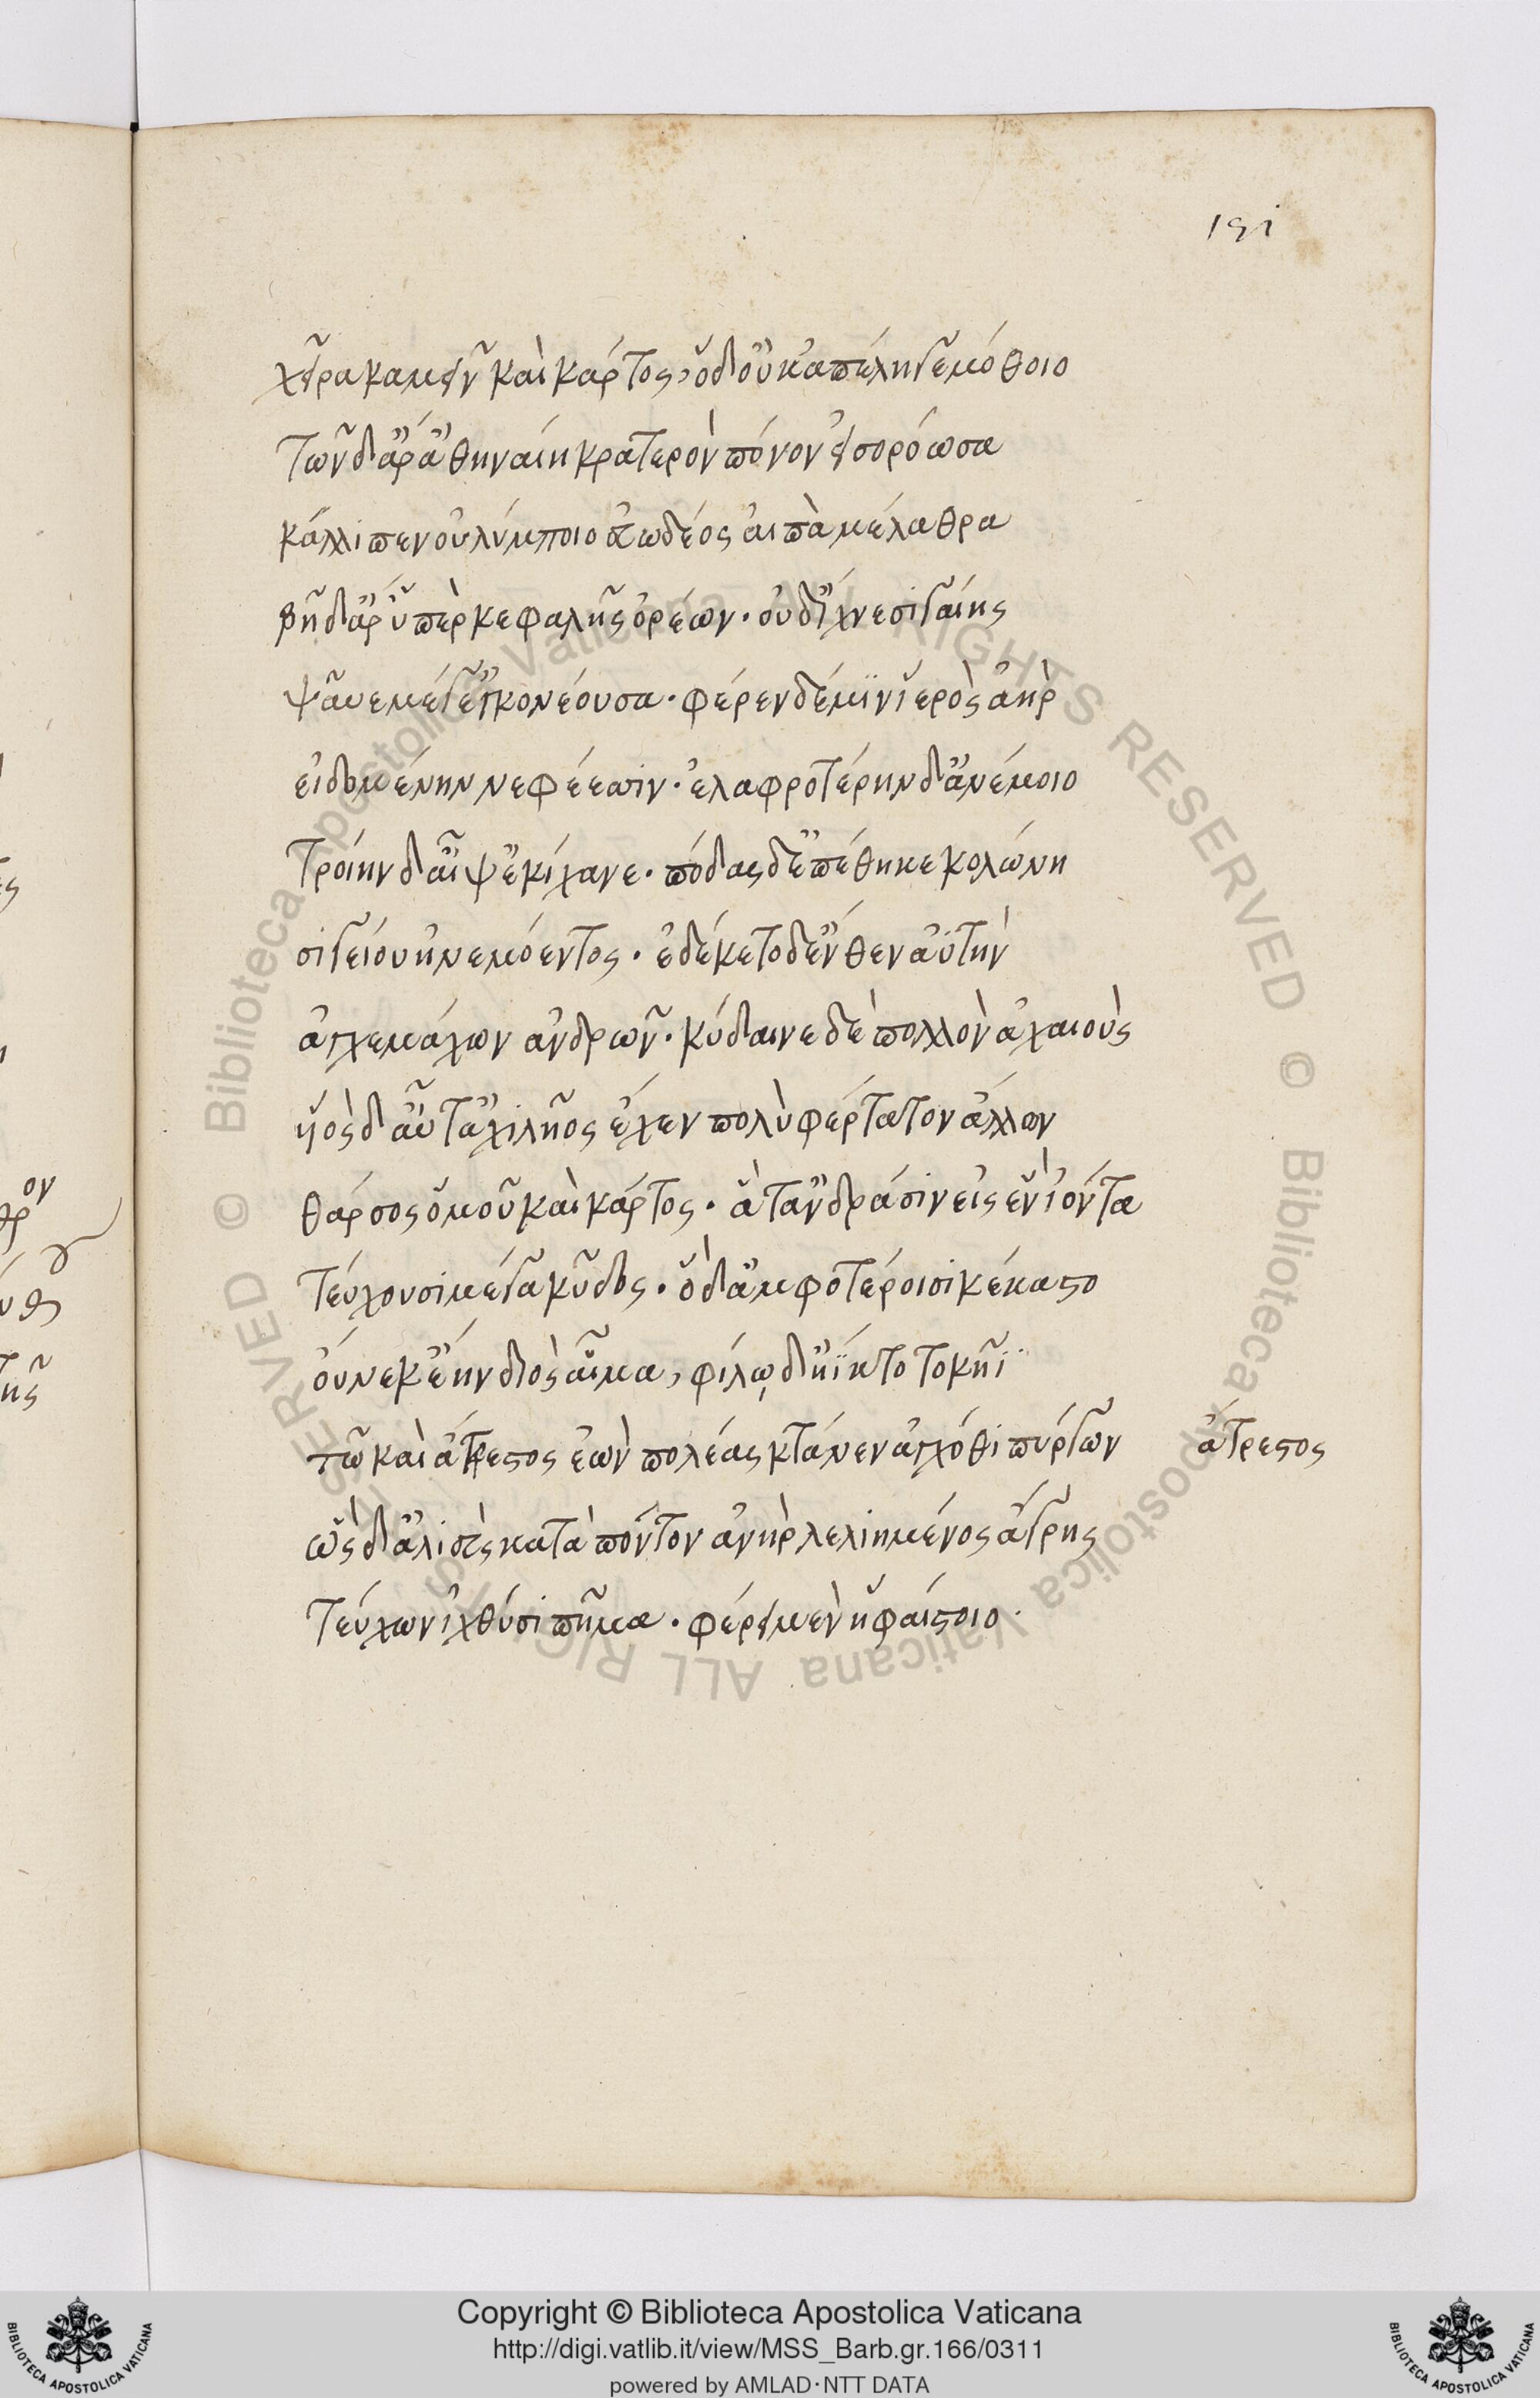 151
χεῖρα καμεῖν καὶ κάρτος, ὁ δ' οὐκ ἀπέληγε μόθοιο
τῶν δ' ἄρ' ἀθηναίη κρατερὸν πόνον εἰσορόωσα
κάλλιπεν οὐλύμποιο θυώδεος αἰπὰ μέλαθρα
βῆ δ' ἄρ' ὑπὲρ κεφαλῆς ὀρέων· οὐδ' ἴχνεσι γαίης
ψαῦε μέγ' ἐγκονέουσα· φέρεν δέ μϊν ἱερὸς ἀὴρ
εἰδομένην νεφέεσσιν· ἐλαφροτέρην δ' ἀνέμοιο
τροίην δ' αἶψ' ἐκίχανε· πόδας δ' ἐπέθηκε κολώνη
σιγείου ἠνεμόεντος· ἐδέκετο δ' ἔνθεν ἀϋτὴν
ἀγχεμάχων ἀνδρῶν· κύδαινε δὲ πολλὸν ἀχαιοὺς
υἱὸς δ' αὖτ' ἀχιλῆος ἔχεν πολὺ φέρτατον ἄλλων
θάρσος ὁμοῦ καὶ κάρτος· ἅ τ' ἀνδράσιν εἰς ἓν ἰόντα
τεύχουσι μέγα κῦδος· ὁ δ' ἀμφοτέροισι κέκαστο
οὕνεκ' ἔην διὸς αἷμα, φίλῳ δ' ἤϊκτο τοκῆϊ
τῶ καὶ ἄτρεστος ἐὼν πολέας κτάνεν ἀγχόθι πύργων
ἄτρεστος
ὡς δ' ἁλιεὺς κατὰ πόντον ἀνὴρ λελιημένος ἄγρης
τεύχων ἰχθύσι πῆμα· φέρει μὲν ἡφαίστοιο·
Copyright © Biblioteca Apostolica Vaticana
http://digi.vatlib.it/view/MSS_Barb.gr.166/0311
powered by AMLAD·NTT DATA